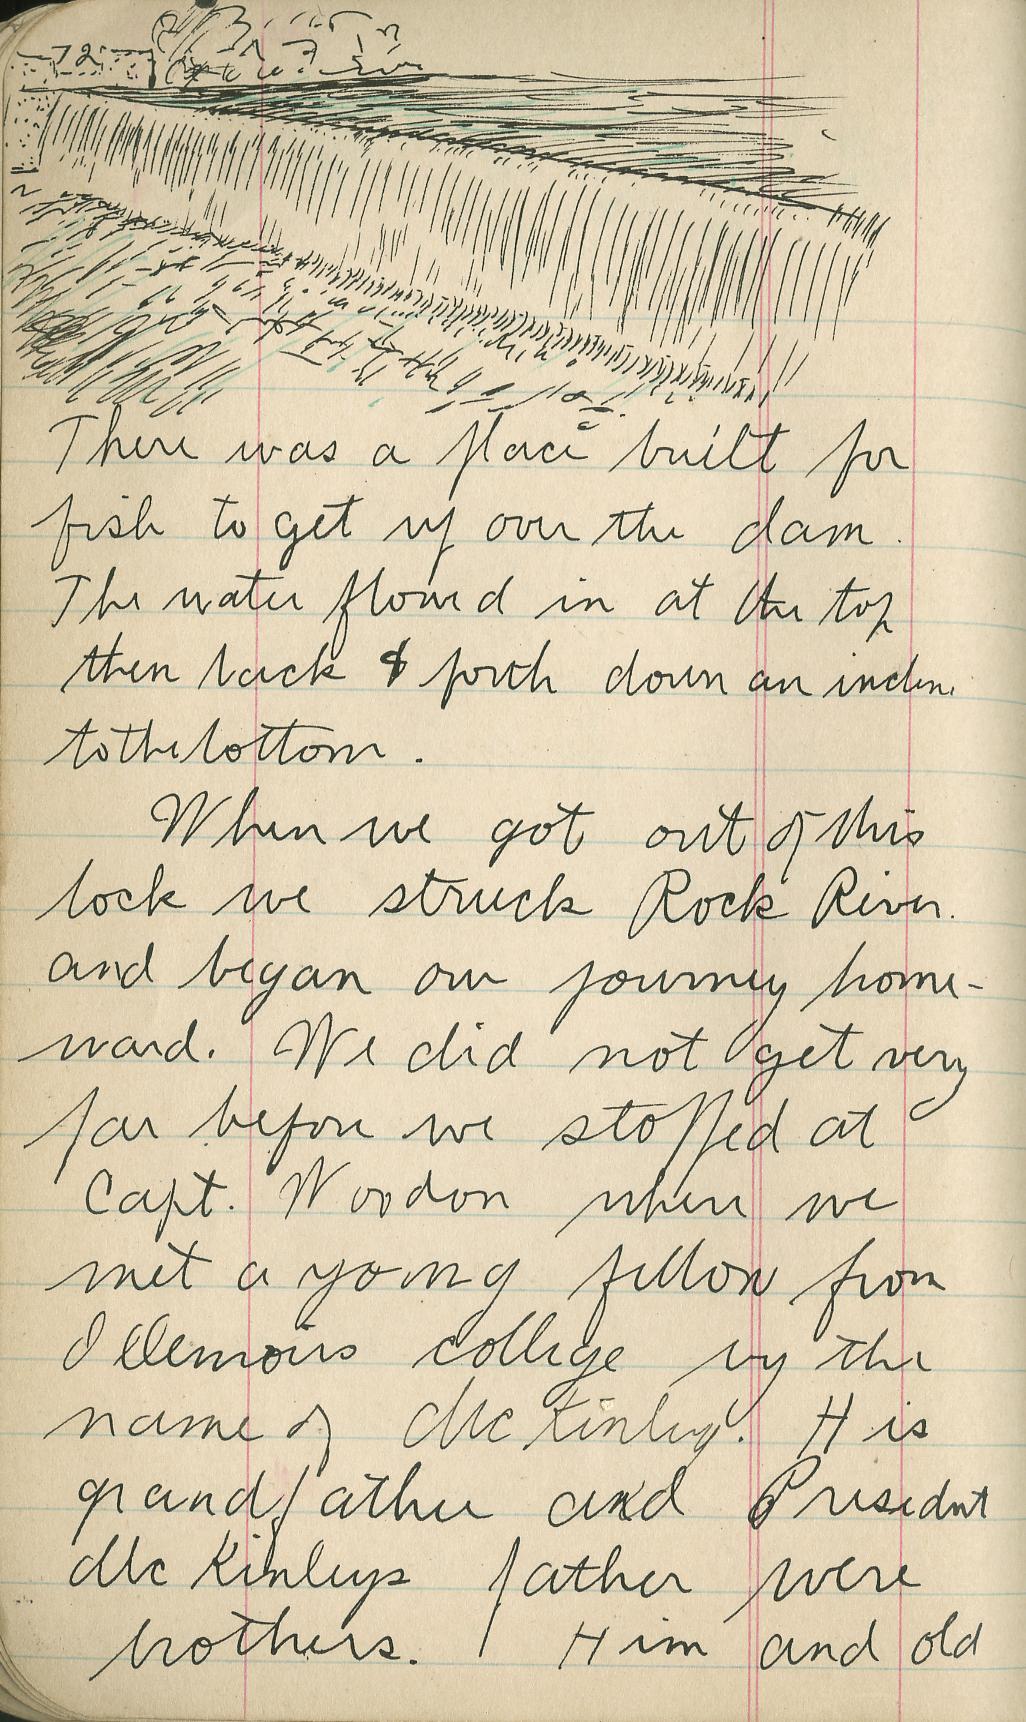 72
There was a place built for
fish to get up over the dam.
The water flowed in at the top
then back & forth down an incline
to the bottom.
When we got out of this
lock we struck Rock River.
and began our journey home-
ward. We did not get very
far before we stopped at
Capt. Woodon where we
met a young fellow from
Illenoirs college by the
name of McKinley. His
grandfather and Presedent
McKinleys father were
brothers. Him and old